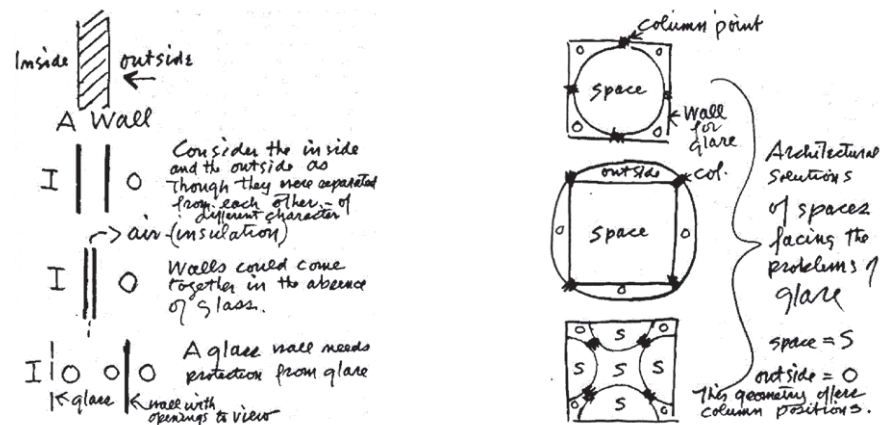 Inside outside
A Wall
I O
Consider the inside
and the outside as
though they were separated
from each other - of
different character
air (insulation)
I O
Walls could come
together in the absence
of glass.
I O O O
A glass wall needs
protection from glare
glass
wall with
openings to view
column point
O O
space
O O
Wall
for
glare
outside
col.
O space O
O
O S O
S S S
O S O
Architectural
solutions
of spaces
facing the
problems of
glare
space = S
outside = O
This geometry offers
column positions.